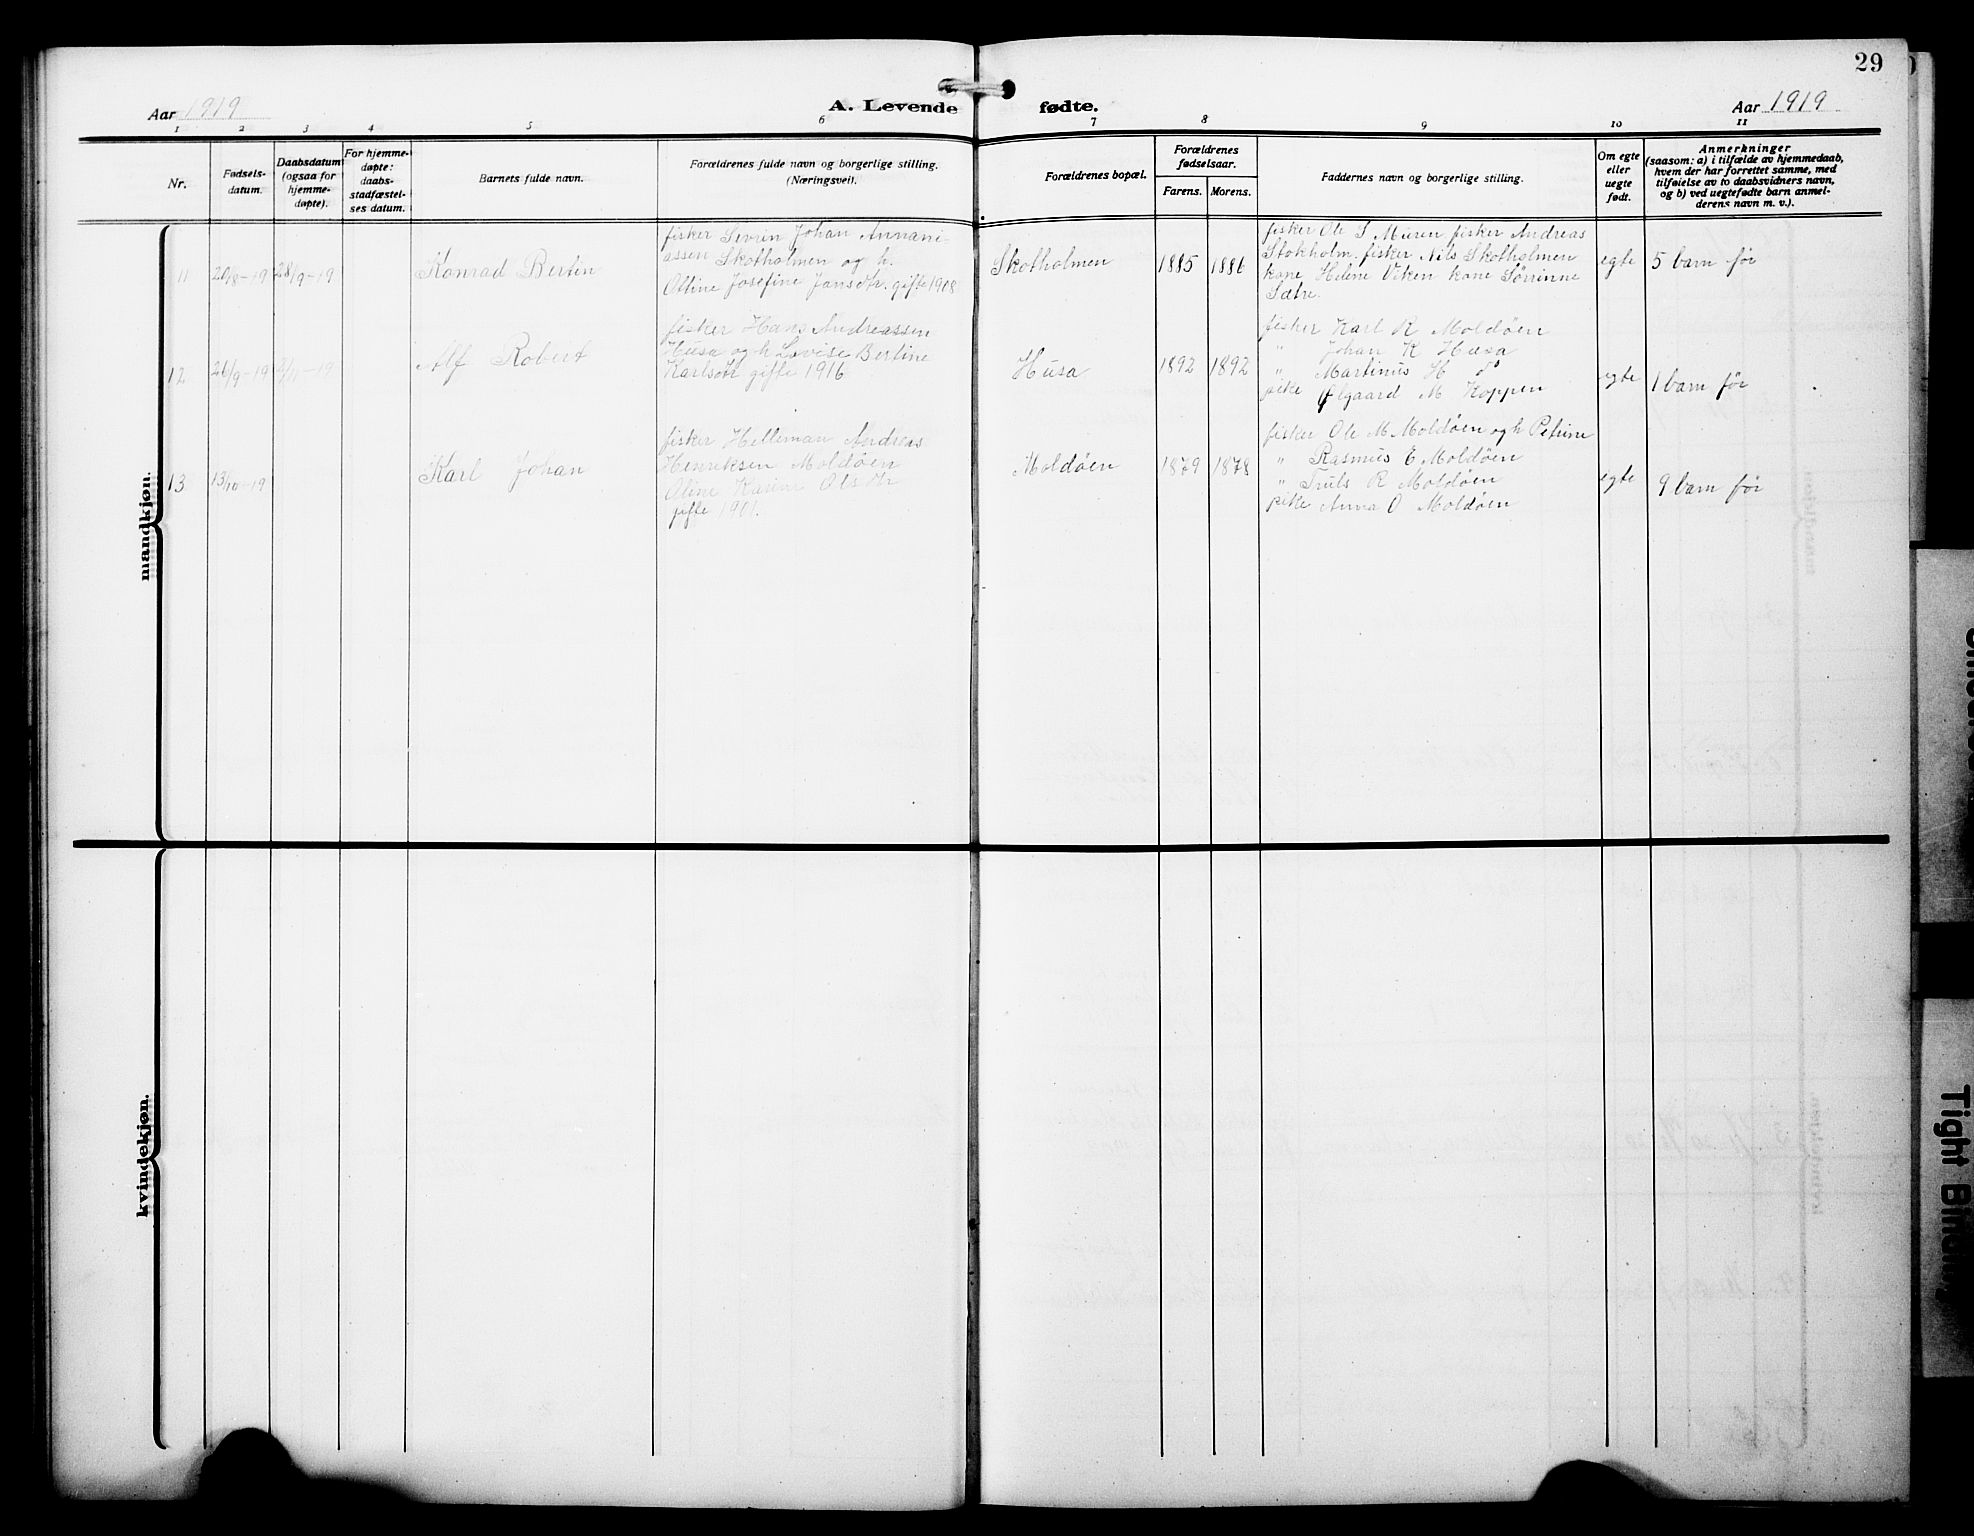 29
Aar 1919
A. Levende fødte.
Aar 1919
1 2 3 4 5 6 7 8 9 10 11
Nr.
Fødsels-
datum.
Daabsdatum
(ogsaa for
hjemme-
døpte).
For hjemme-
døpte:
daabs-
stadfæstel-
ses datum.
Barnets fulde navn.
Forældrenes fulde navn og borgerlige stilling.
(Næringsvei).
Forældrenes bopæl.
Forældrenes
fødselsaar.
Farens. Morens.
Faddernes navn og borgerlige stilling.
Om egte
eller
uegte
født.
Anmerkninger
(saasom: a) i tilfælde av hjemmedaab,
hvem der har forrettet samme, med
tilføielse av to daabsvidners navn,
og b) ved uegtefødte barn anmel-
derens navn m. v.).
mandkjøn.
11
20/8-19
28/9-19
Konrad Bertin
fisker Sevrin Johan Annani-
assen Skotholmen og h.
Oline Josefine Jansdtr. gifte 1908
Skotholmen
1885
1886
fisker Ole S Muren fisker Andreas
Stokholm. fisker Nils Skotholmen
kone Helene Viken kone Sørrinne
Sætre.
egte
5 barn før
12
26/9-19
Alf Robert
fisker Hans Andreassen
Husa og h Lovise Bertine
Karlsdtr gifte 1916
Husa
1892
1892
fisker Karl R Moldøen
" Johan K Husa
" Martinus H do
pike Ølgaard M Koppen
egte
1 barn før
13
13/10-19
Karl Johan
fisker Helleman Andreas
Henriksen Moldøen
Oline Karine Olsdtr
gifte 1901.
Moldøen
1879
1878
fisker Ole M Moldøen og h Petrine
" Rasmus E Moldøen
" Truls R Moldøen
pike Anna O Moldøen
egte
9 barn før
kvindekjøn.
Tight Binding